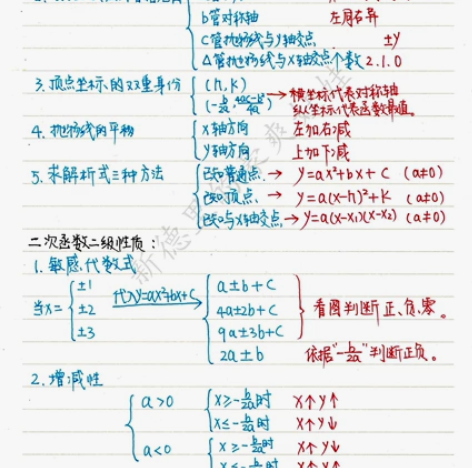 b管对称轴 左同右异
C管抛物线与y轴交点 ±y
Δ管抛物线与x轴交点个数 2.1.0
3. 顶点坐标的双重身份 { (h,k) → 横坐标代表对称轴
(-b/2a, 4ac-b²/4a) 纵坐标代表函数最值。
4. 抛物线的平移 { x轴方向 左加右减
y轴方向 上加下减
5. 求解析式三种方法 { 已知普通点 → y=ax²+bx+c (a≠0)
已知顶点 → y=a(x-h)²+k (a≠0)
已知与x轴交点 → y=a(x-x₁)(x-x₂) (a≠0)
二次函数二级性质:
1. 敏感代数式
当x= { ±1 代入y=ax²+bx+c → { a±b+c
±2 4a±2b+c } 看图判断正、负、零。
±3 9a±3b+c
2a±b 依据"-b/2a"判断正负。
2. 增减性
{ a>0 { x≥-b/2a时 x↑y↑
x≤-b/2a时 x↑y↓
a<0 { x≥-b/2a时 x↑y↓
x≤-b/2a时 x↑y↑